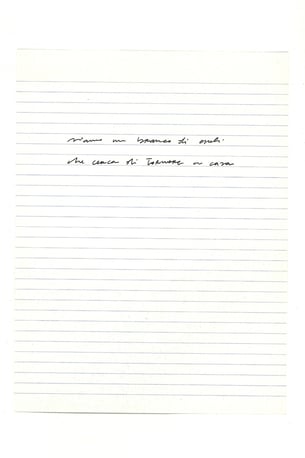 siamo un branco di
che cerca di tornare a casa